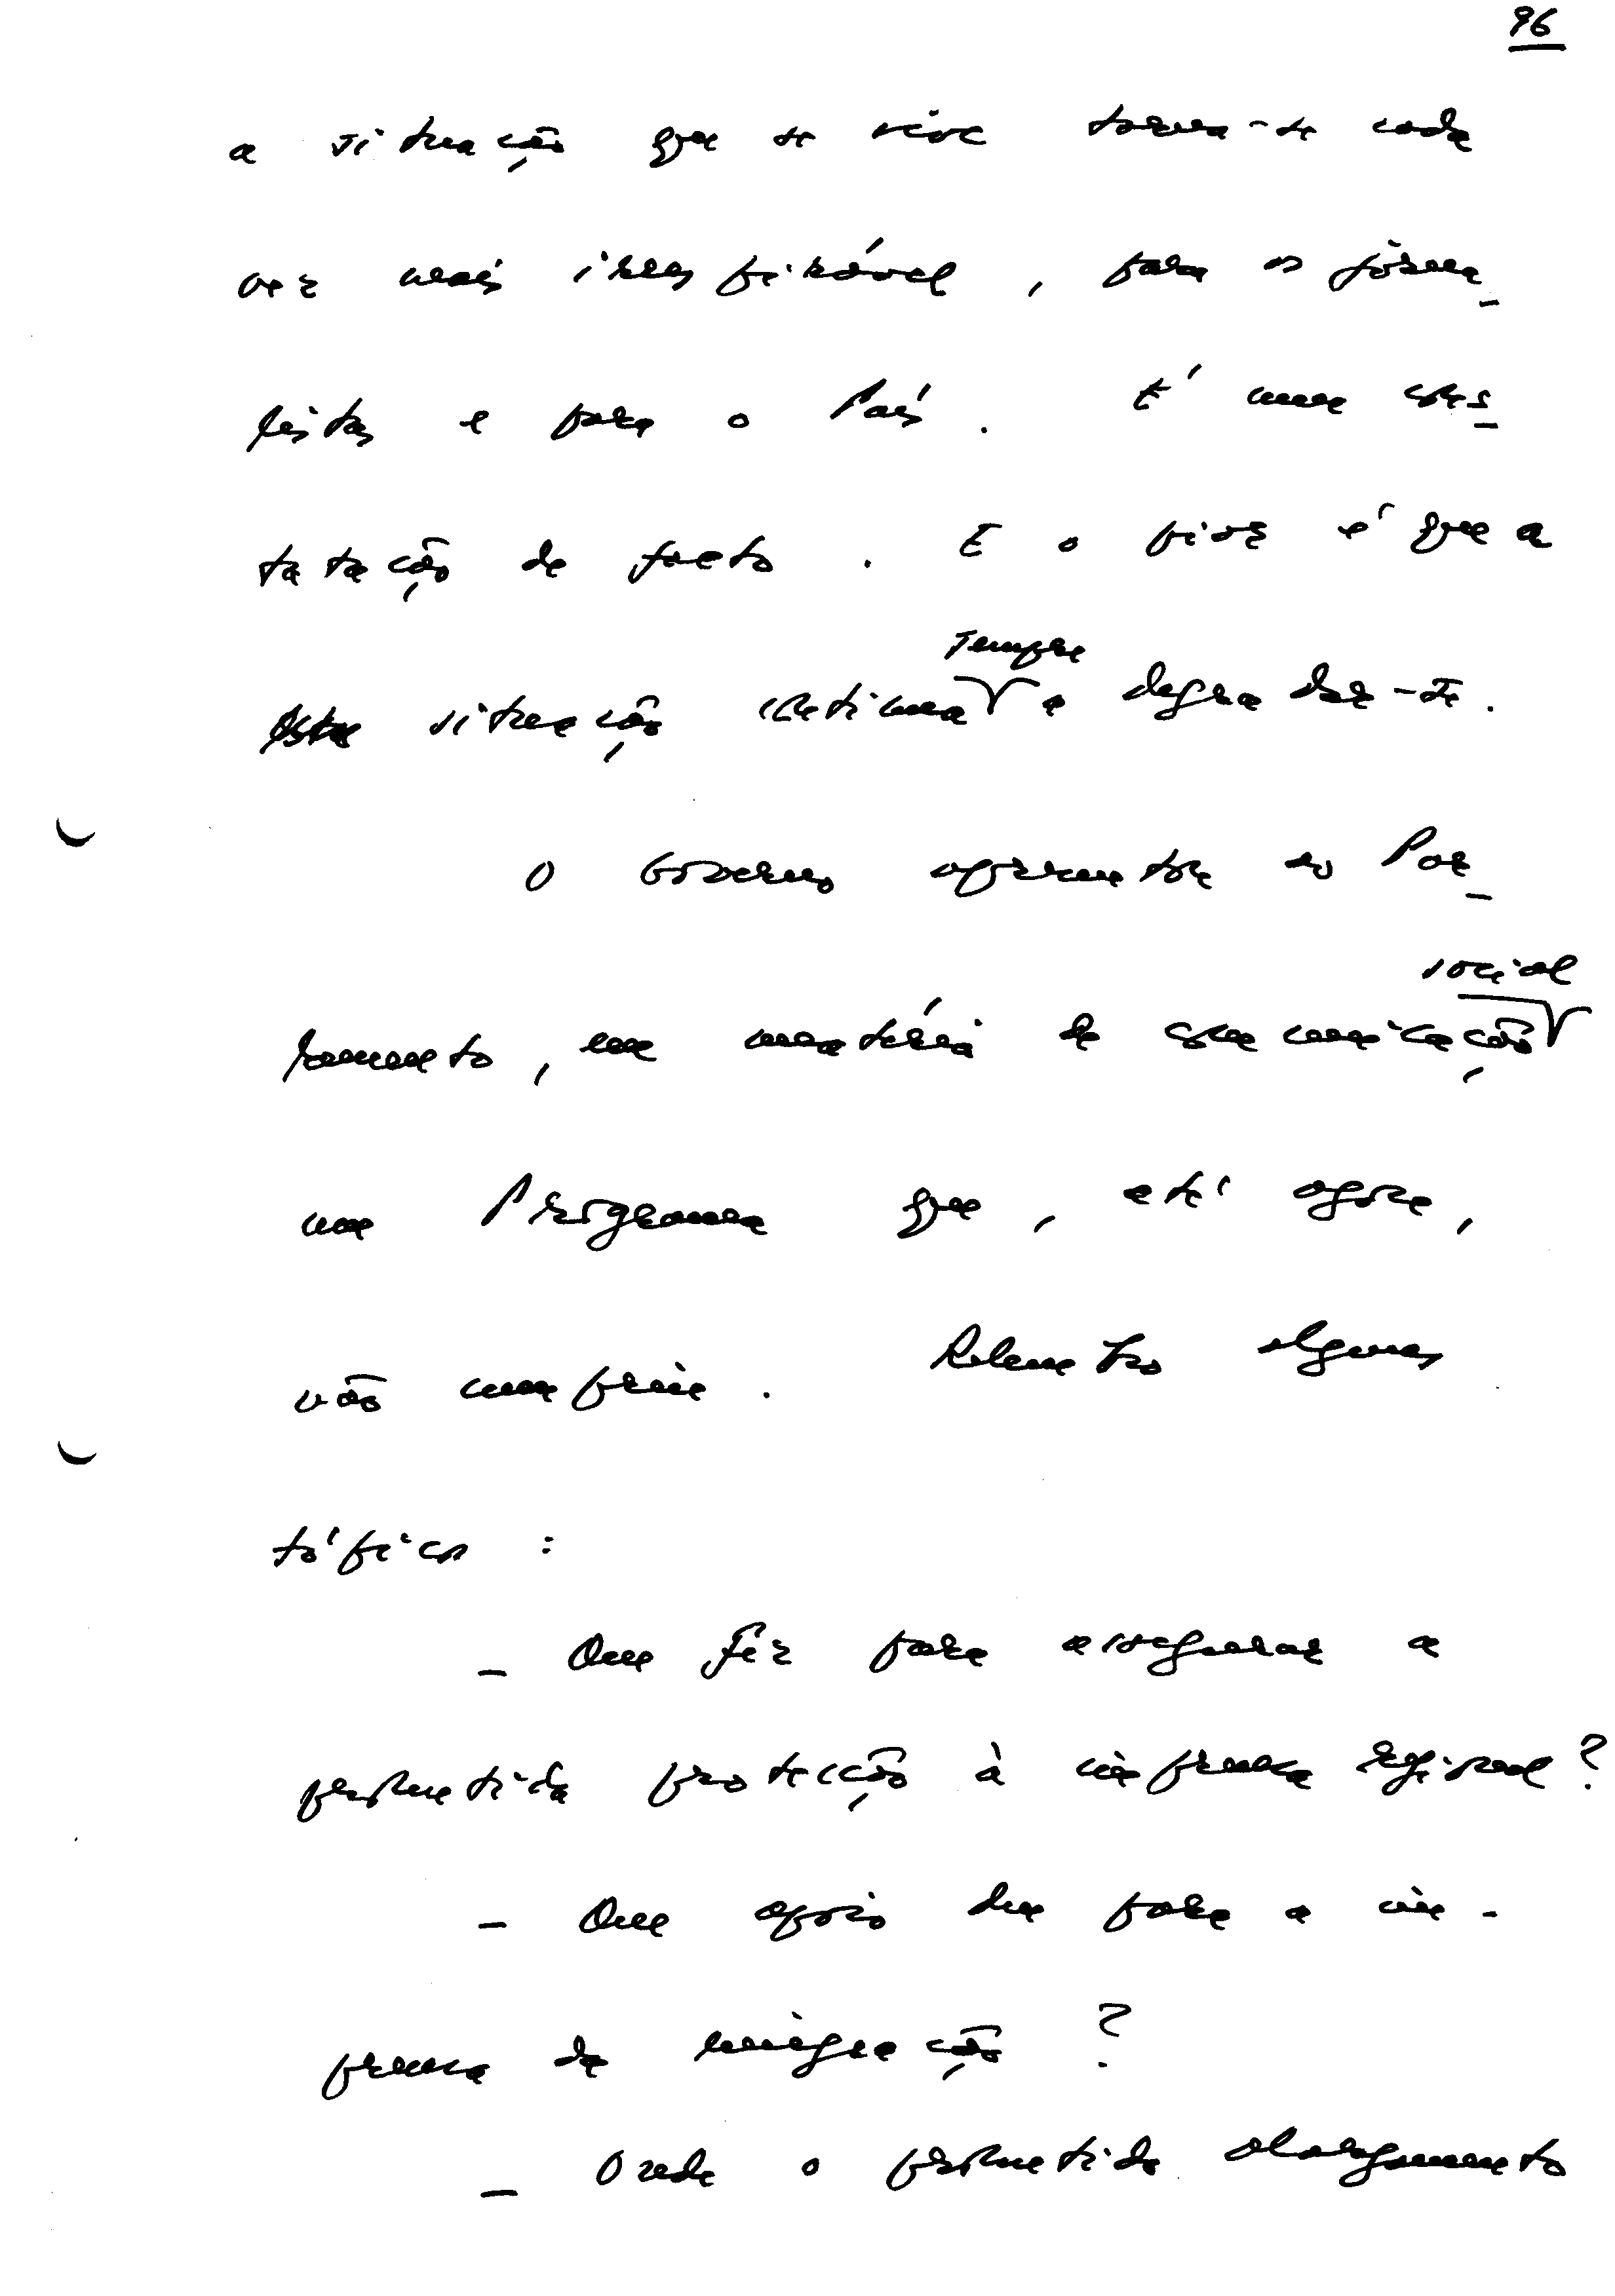 96
a situação que se vive torna-se cada
vez mais irrespirável, para os jorna_
listas e para o País. É uma cons_
tatação de facto. E o pior é que a
situação continua sempre a degradar-se.
O Governo apresentou ao Par_
lamento, em matéria de comunicação social
um Programa que, até agora,
não cumpriu. Relembro alguns
tópicos :
_ Que fez para assegurar a
prometida protecção à imprensa regional?
_ Que apoio deu para a im-
prensa da emigração ?
_ Onde o prometido alargamento